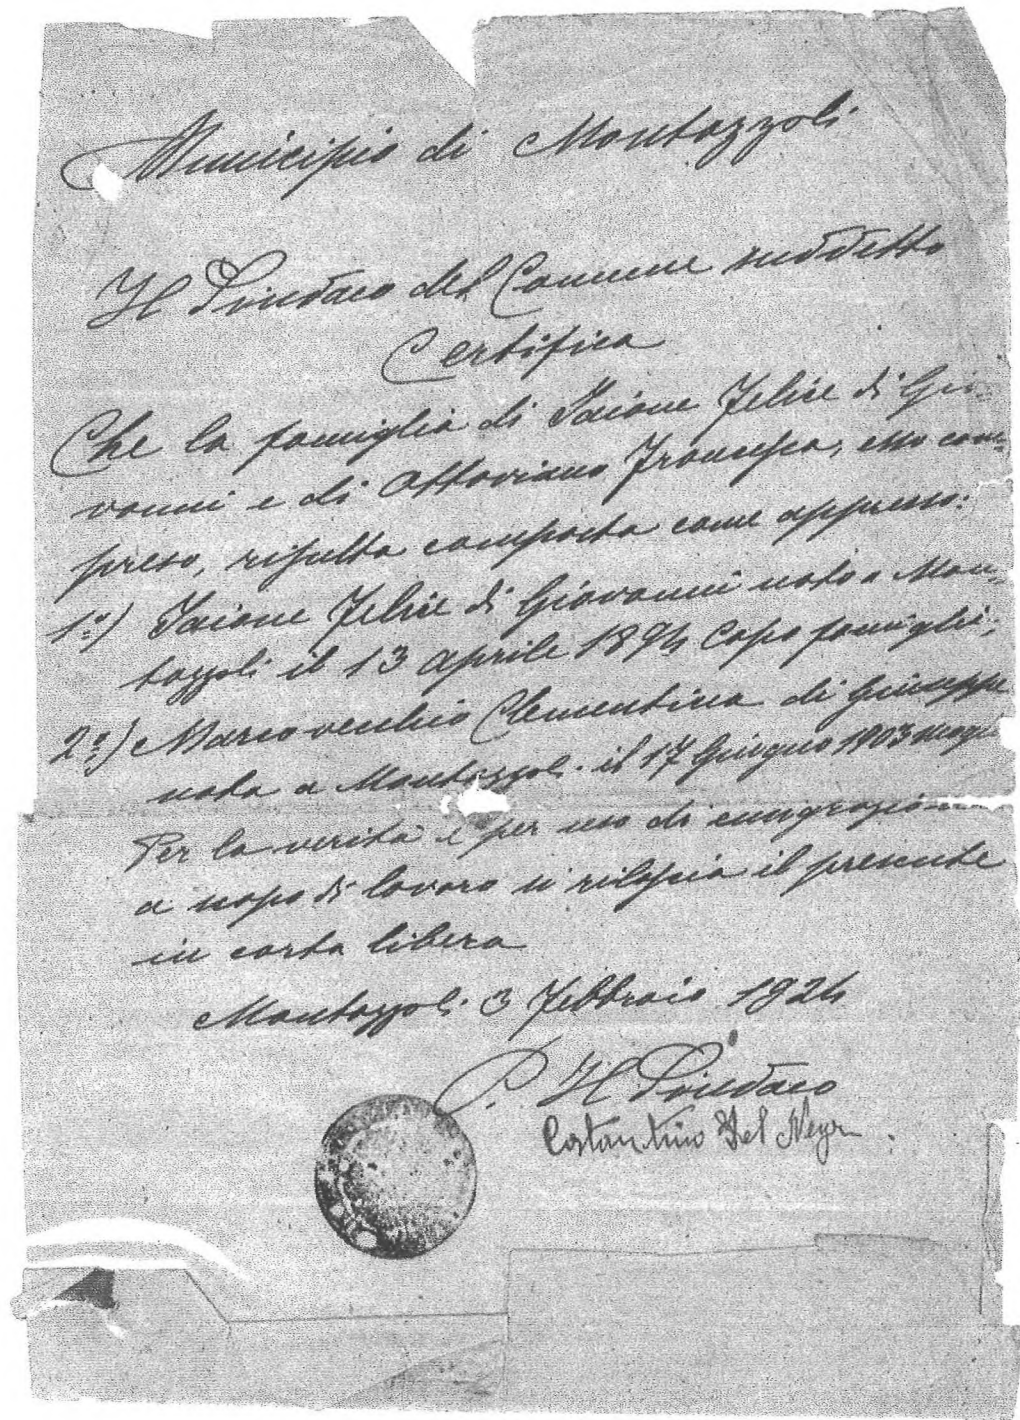 Municipio di Montazzoli
Il Sindaco del Comune suddetto
Certifica
Che la famiglia di Iaione Felice di Gio-
vanni e di Attoriano Francesca, esso com-
preso, risulta composta come appresso:
1°) Iaione Felice di Giovanni nato a Mon-
tazzoli il 13 Aprile 1894 Capo famiglia;
2°) Marcovecchio Clementina di Giuseppe
nata a Montazzoli il 17 Giugno 1903 moglie
Per la verità e per uso di emigrazione
a scopo di lavoro si rilascia il presente
in carta libera
Montazzoli 3 Febbraio 1924
P. Il Sindaco
Costantino Del Negro